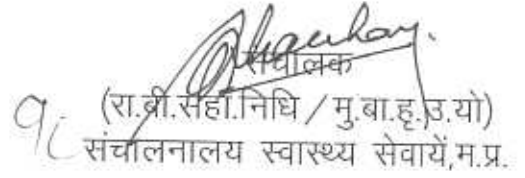 संचालक
(रा.बी.सहा.निधि / मु.बा.हृ.उ.यो)
संचालनालय स्वास्थ्य सेवायें,म.प्र.